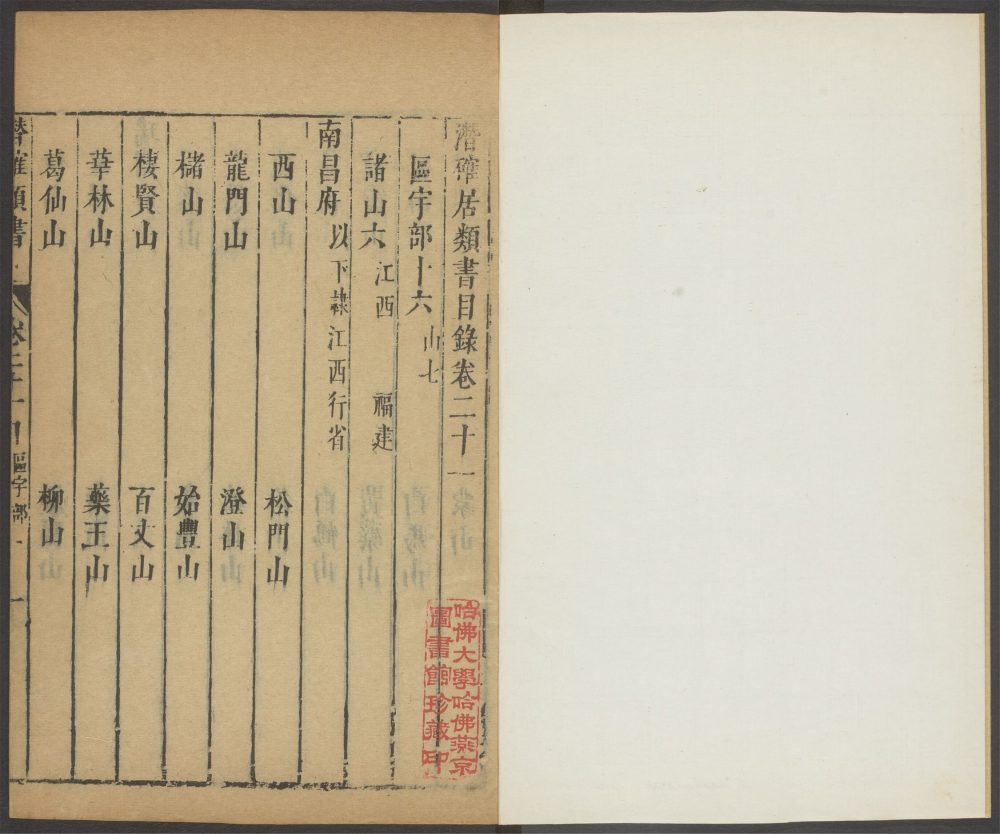 潛確居類書目錄卷二十一
區宇部十六 山七
諸山六 江西 福建
南昌府 以下隸江西行省
西山 松門山
龍門山 澄山
櫧山 始豐山
棲賢山 百丈山
華林山 藥王山
葛仙山 柳山
潛確類書 卷二十一 區宇部
哈佛大學哈佛燕京
圖書館珍藏印